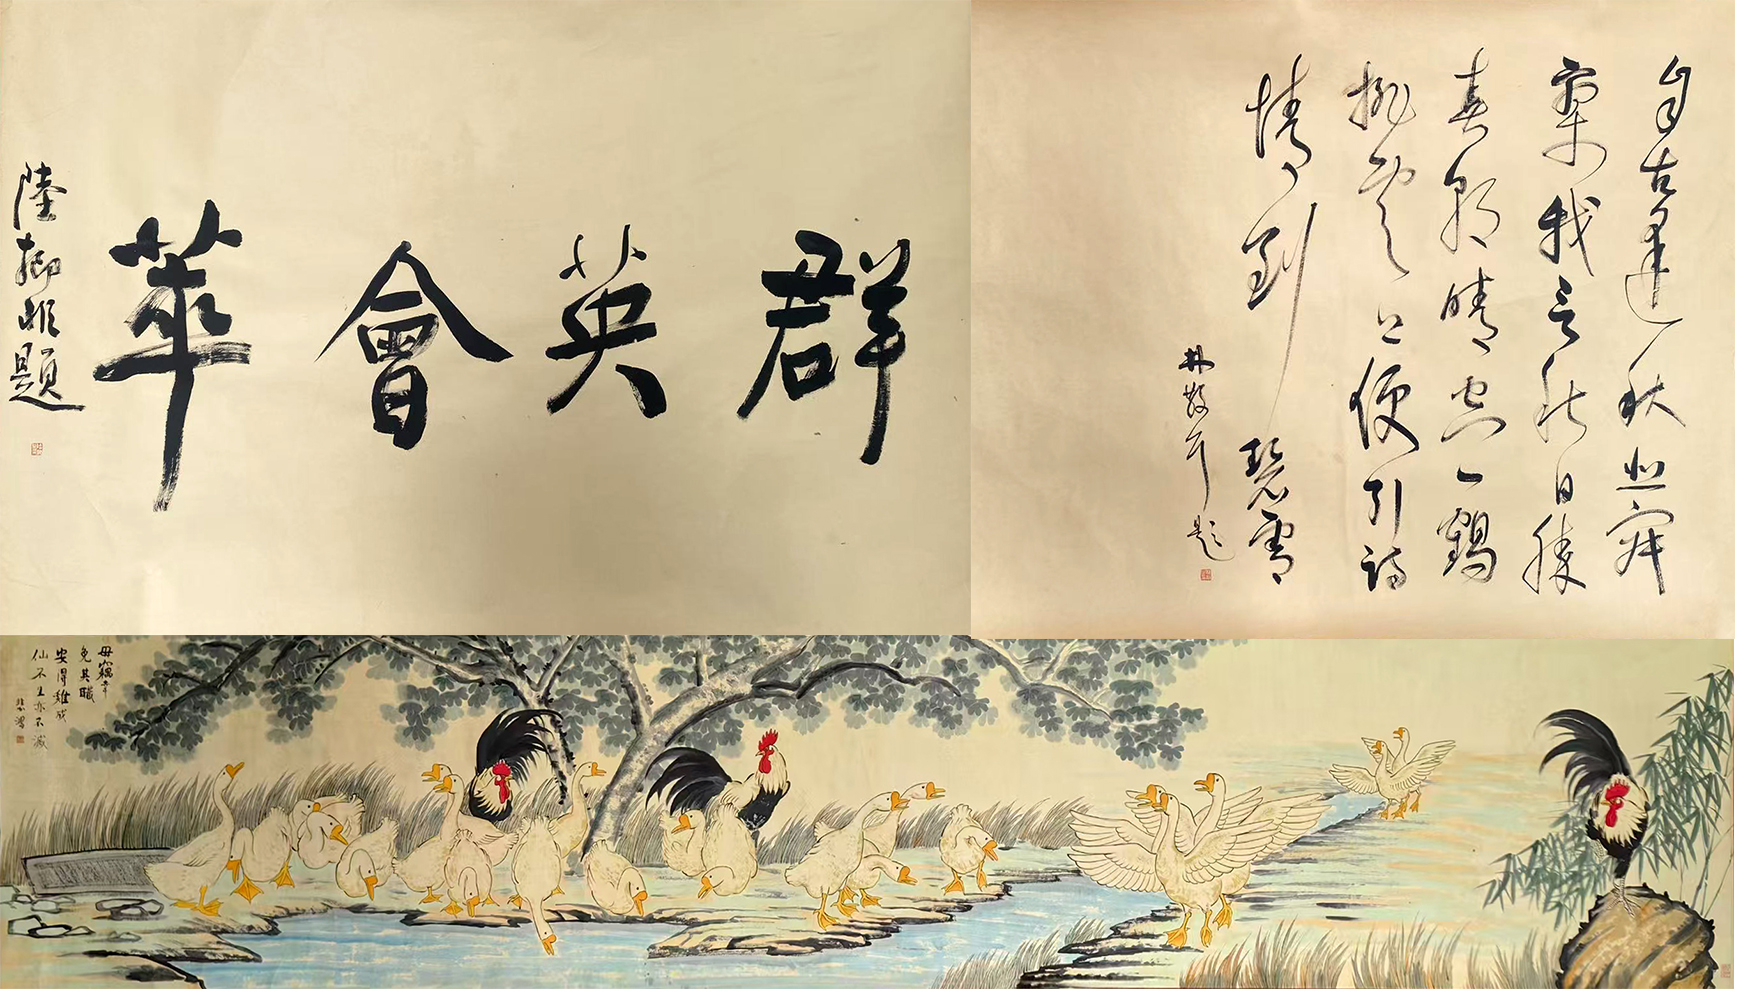 群英會萃
陸抑非題
自古逢秋悲寂
寥我言秋日勝
春朝晴空一鶴
排雲上便引詩
情到碧霄
林散耳題
毋竊
免其職
安得雞成
仙不生亦不滅
悲鴻